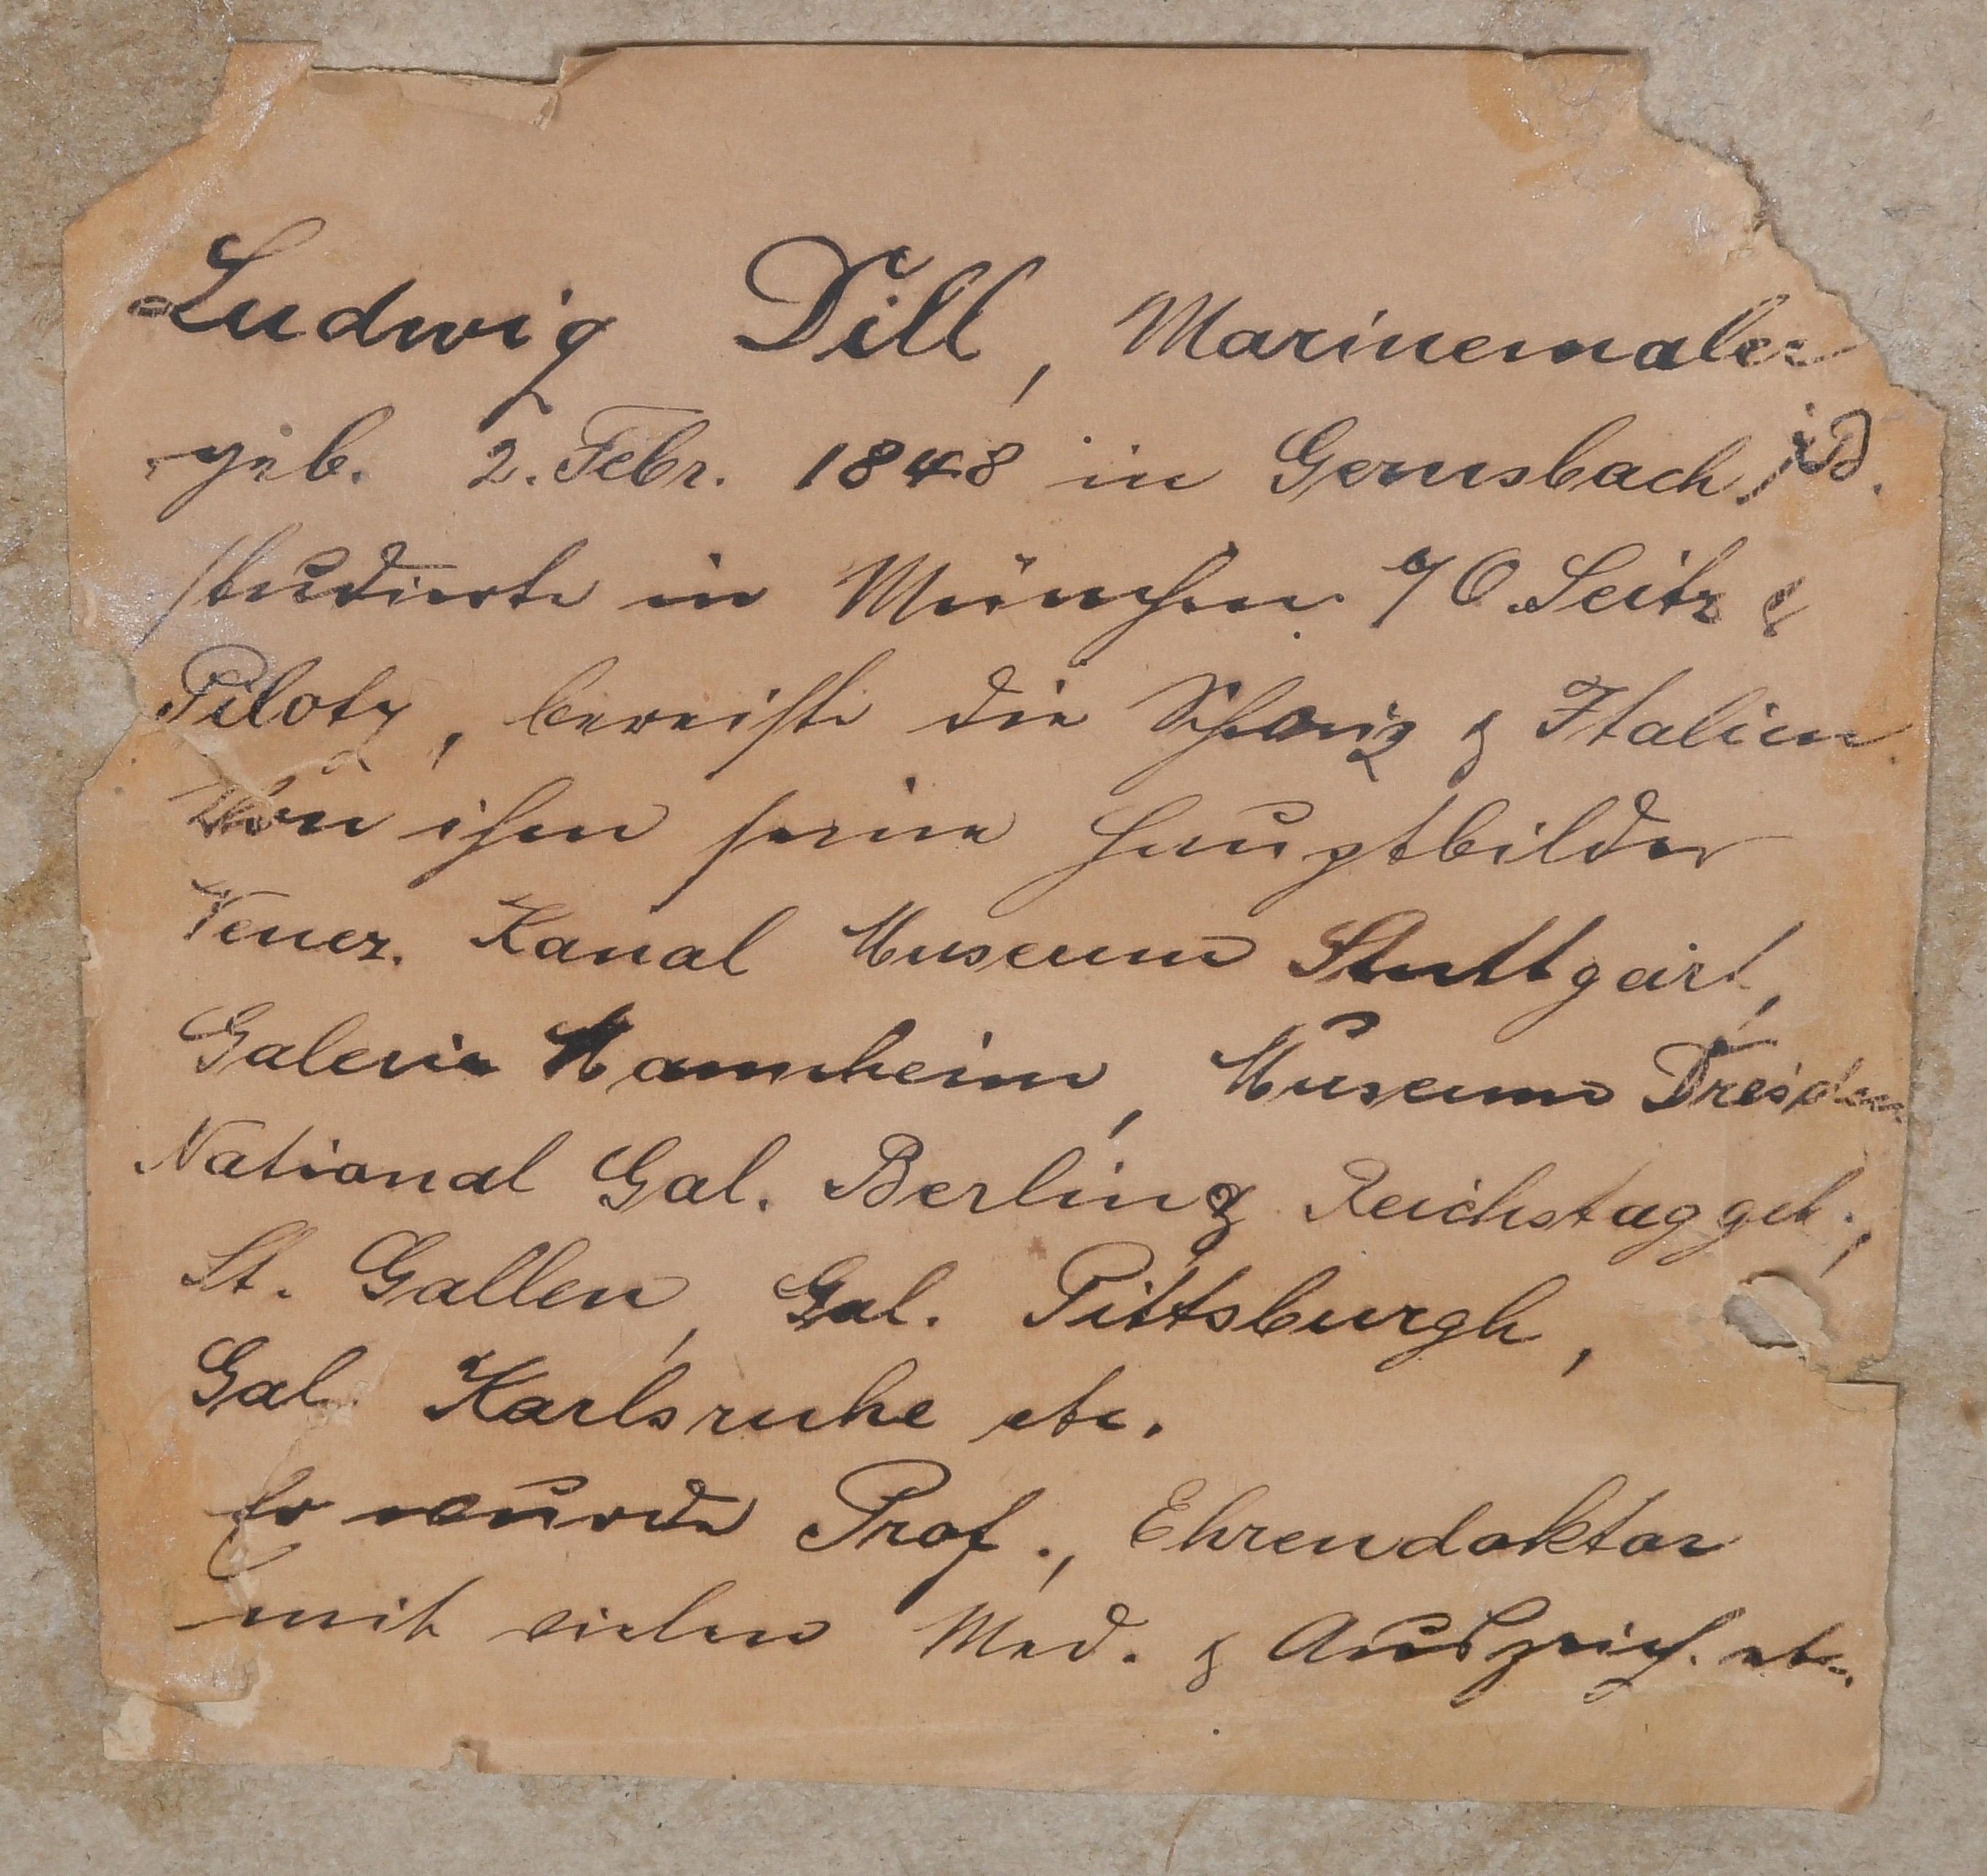 Ludwig Dill, Marinemaler
geb. 2. Febr. 1848 in Gernsbach
studierte in München O. Seitz &
Piloty, bereiste die Schweiz & Italien
Von ihm seine Hauptbilder
Venez. Kanal Museum Stuttgart,
Galerie Mannheim, Museum Dresden
National Gal. Berlin, Reichstaggeb.,
St. Gallen, Gal. Pittsburgh,
Gal. Karlsruhe etc.
Er wurde Prof., Ehrendoktor
mit vielen Med. & Auszeich. etc.